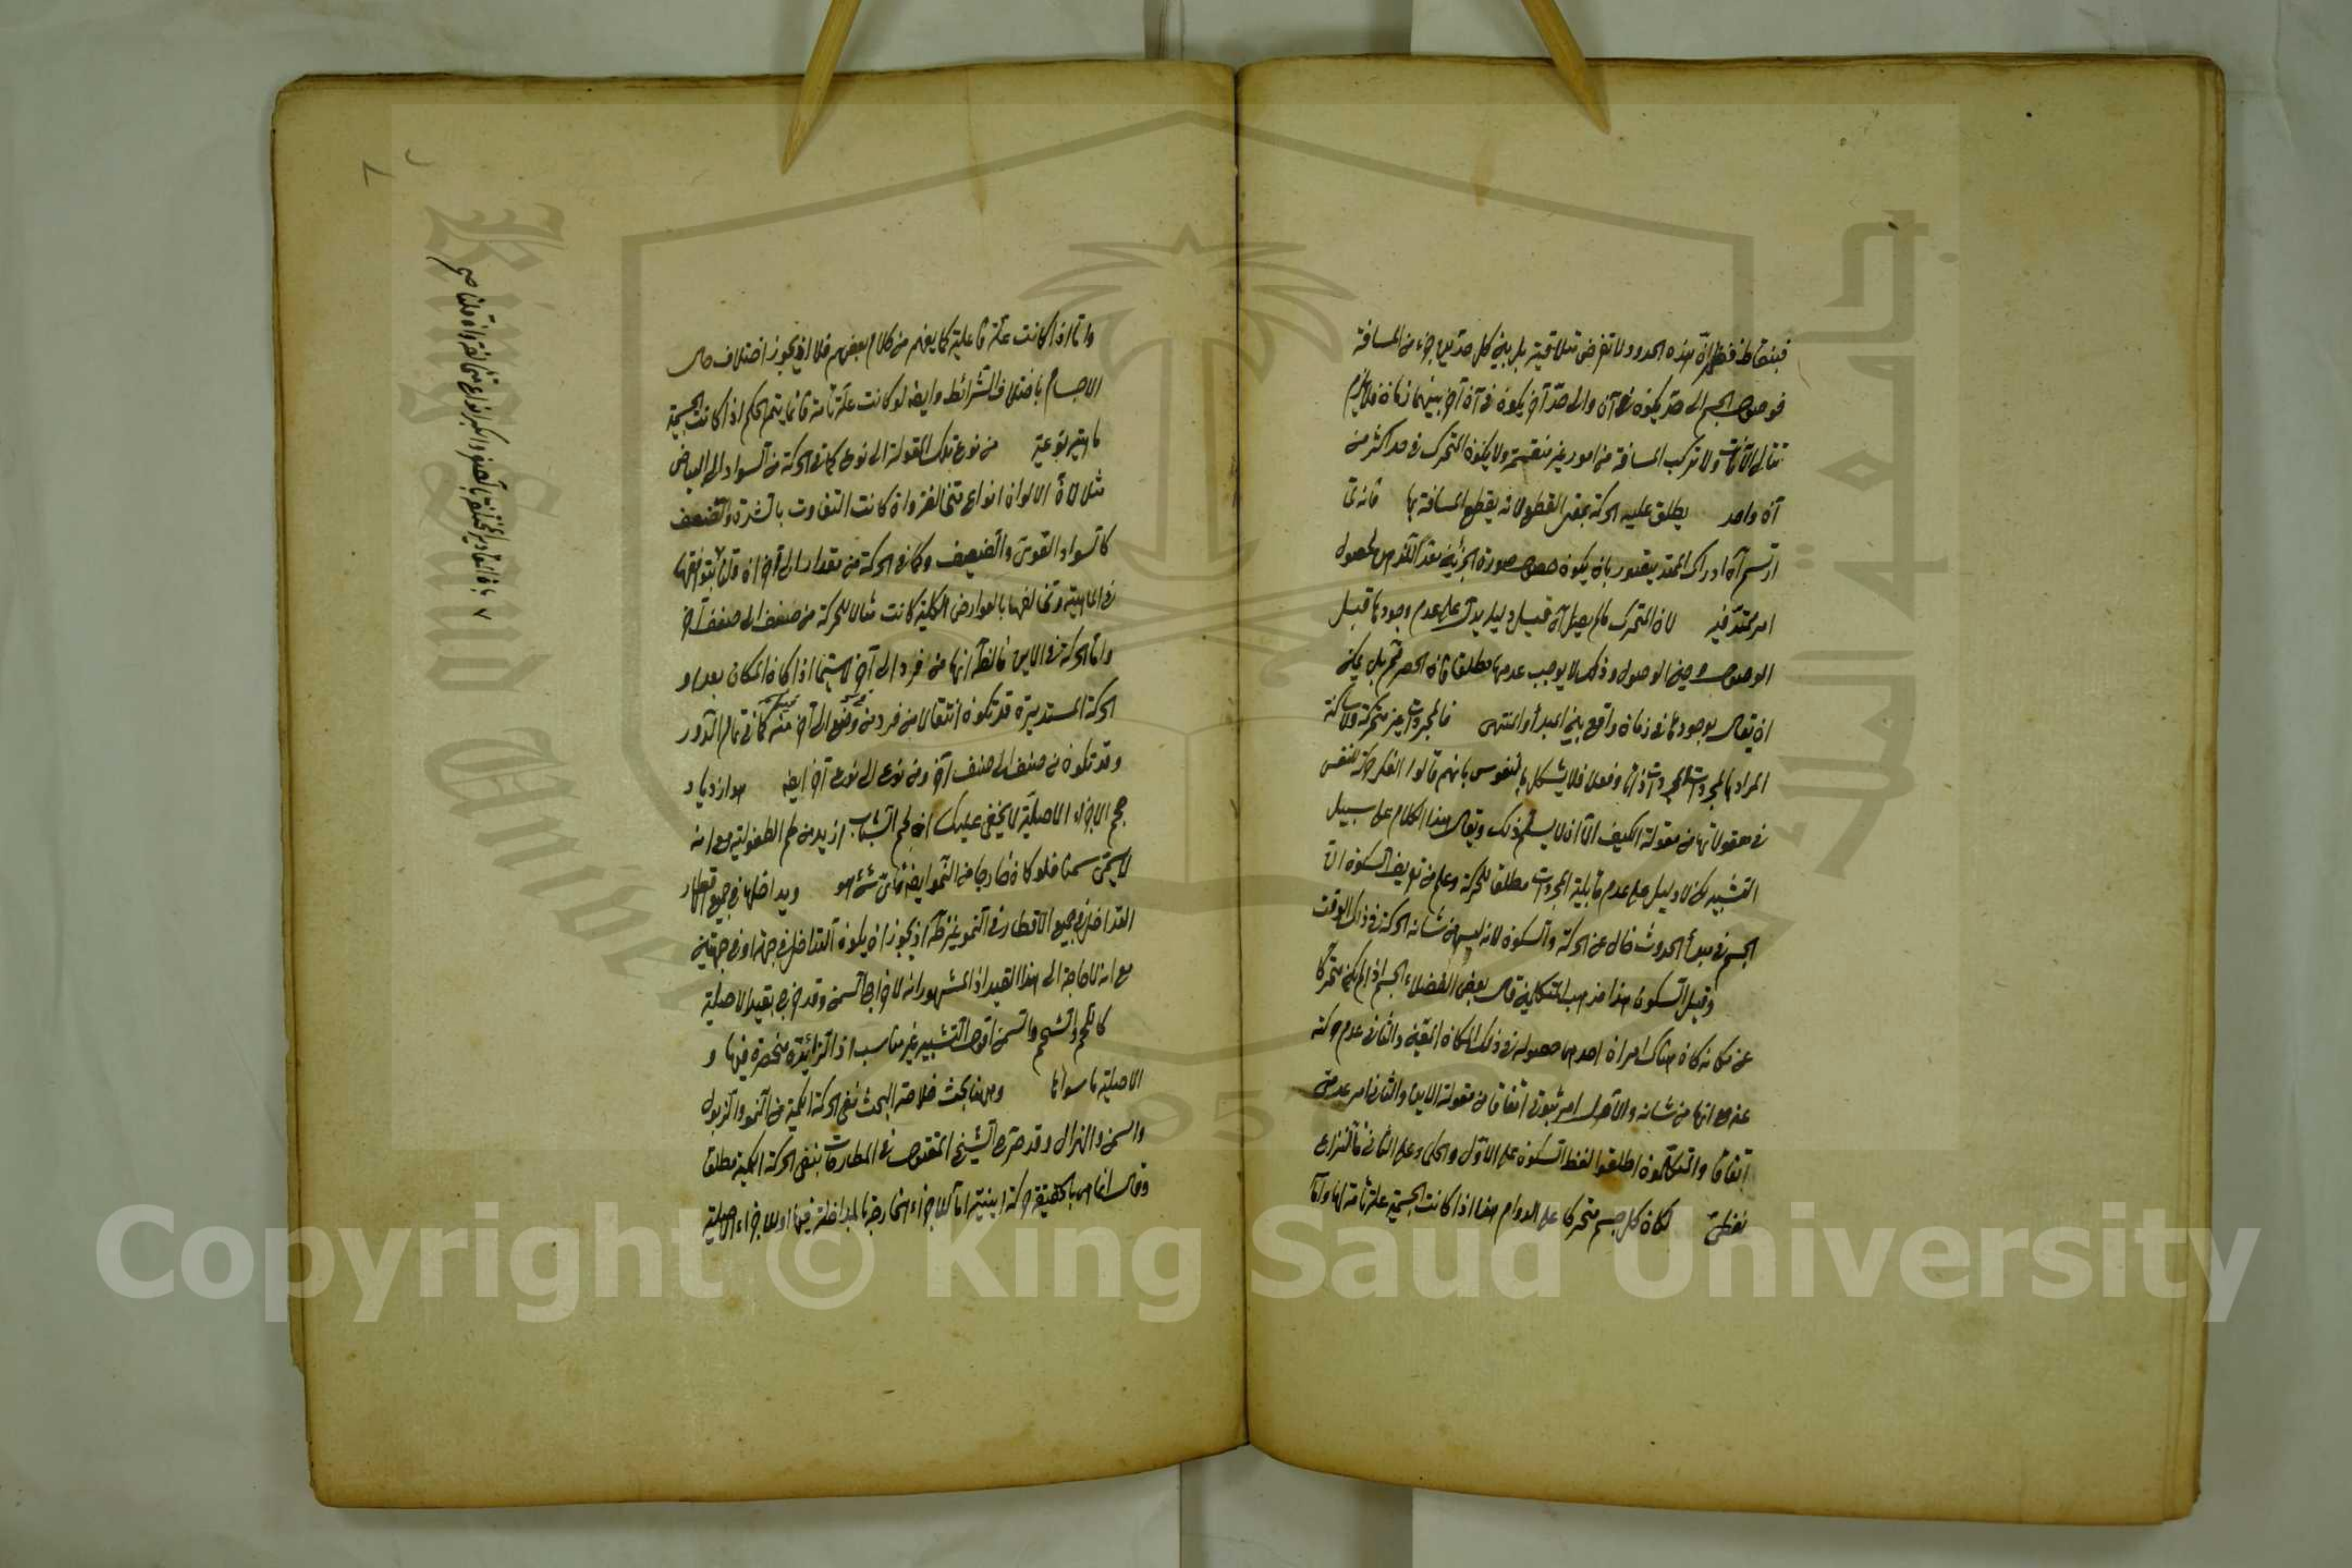 فبنقاط فظهر ان هذه الحدود لا تفرض متلاقية بل بين كل حدين جزء من المسافة
فوصول الجسم الى حد يكون في آن والى حد آخر يكون في آن آخر بينهما زمان فلا يلزم
تتالى الآنات ولا تركب المسافة من امور غير منقسمة ولا يكون المتحرك في حد اكثر من
آن واحد يطلق عليه الحركة بمعنى القطع لانه يقطع المسافة بها فانه لما
ارتسم آه ادراك الممتد يتصور بان يكون حصول صورة الجزئية معد لحصول
امر ممتد فيه لان المتحرك ما لم يصل آه قيل دليله يدل على عدم وجودها قبل
الوصول وحين الوصول وذلك لا يوجب عدمها مطلقا فان الحصر ثم بل يمكن
ان يقال بوجودها في زمان واقع بين المبدأ والمنتهى فالمجردات غير متحركة ولا ساكنة
المراد بالمجردات المجردات ذاتا وفعلا فلا يشكل بالنفوس بانهم قالوا الفكر حركة للنفس
في معقولاتها من مقولة الكيف الا ان لا يسلم ذلك ويقال هذا الكلام على سبيل
التشبيه لكن لا دليل على عدم قابلية المجردات مطلقا للحركة وعلم من تعريف السكون ان
الجسم في مبدأ الحدوث خال عن الحركة والسكون لانه ليس من شانه الحركة في ذلك الوقت
وقيل السكون هذا مذهب المتكلمين قال بعض الفضلاء الجسم اذا لم يكن متحركا
عن مكانه كان هناك امران احدهما حصوله في ذلك المكان المعين والثاني عدم حركته
عنه مع انها من شانه والاول امر ثبوتي اتفاقا من مقولة الاين والثاني امر عدمي
اتفاقا والمتكلمون اطلقوا لفظ السكون على الاول والحكماء على الثاني فالنزاع
لفظي لكان كل جسم متحركا على الدوام هذا اذا كانت الجسمية علة تامة لها واما
واما اذا كانت علة فاعلية كما يفهم من كلام بعضهم فلا اذ يجوز اختلاف حال
الاجسام باختلاف الشرائط وايضا لو كانت علة تامة فانما يتم الحكم اذا كانت الجسمية
ماهية نوعية من نوع تلك المقولة الى نوع كما في الحركة من السواد الى البياض
مثلا لان الالوان انواع متخالفة وان كانت التفاوت بالشدة والضعف
كالسواد القوي والضعيف وكما في الحركة من مقدار الى آخر ان قلنا بتوافقها
في الماهية وتخالفها بالعوارض الكلية كانت مثالا للحركة من صنف الى صنف آخر
واما الحركة في الاين فالظ انها من فرد الى آخر لا سيما اذا كان المكان بعدا و
الحركة المستديرة قد تكون انتقالا من فرد من وضع الى آخر منه كما في تمام الدور
وقد تكون من صنف الى صنف آخر ومن نوع الى نوع آخر ايضا هو ازدياد
حجم الاجزاء الاصلية لا يخفى عليك ان لحم الشاب ازيد من لحم الطفولية مع انه
لا يسمى سمنا فلو كان خارجا من النمو ايضا فاي شئ هو ويداخلها في جميع الاقطار
التداخل في جميع الاقطار في النمو غير ظ اذ يجوز ان يكون التداخل في جهة او في جهتين
مع انه لا حاجة الى هذا القيد اذ المشهور انه لاخراج السمن وقد خرج بقيد الاصلية
كاللحم والشحم والسمن اقول التشبيه غير مناسب اذ الزائدة منحصرة فيها و
الاصلية ما سواها وههنا بحث خلاصة البحث نفي الحركة الكمية في النمو والذبول
والسمن والهزال وقد صرح الشيخ المقتول في المطارحات بنفي الحركة الكمية مطلقا
وقال انما هي بالحقيقة حركة اينية اما للاجزاء الخارجة بالمداخلة فيها او للاجزاء الاصلية